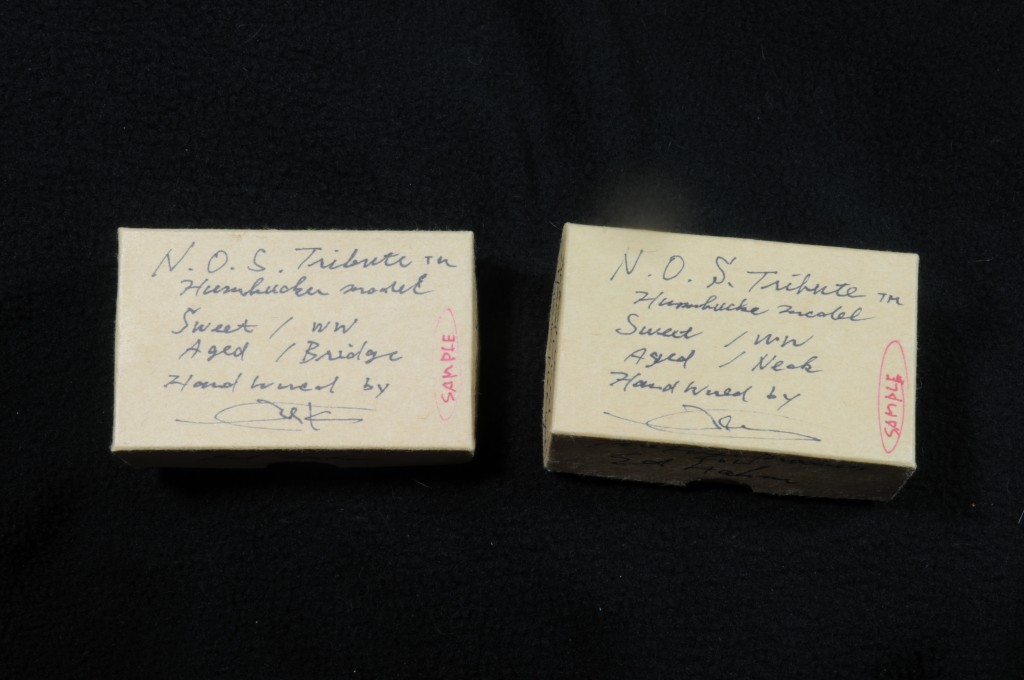 N.O.S. Tribute TM
Humbucker model
Sweet / WW
Aged / Bridge
Hand Wired by
SAMPLE
N.O.S. Tribute TM
Humbucke model
Sweet / WW
Aged / Neck
Hand Wired by
SAMPLE